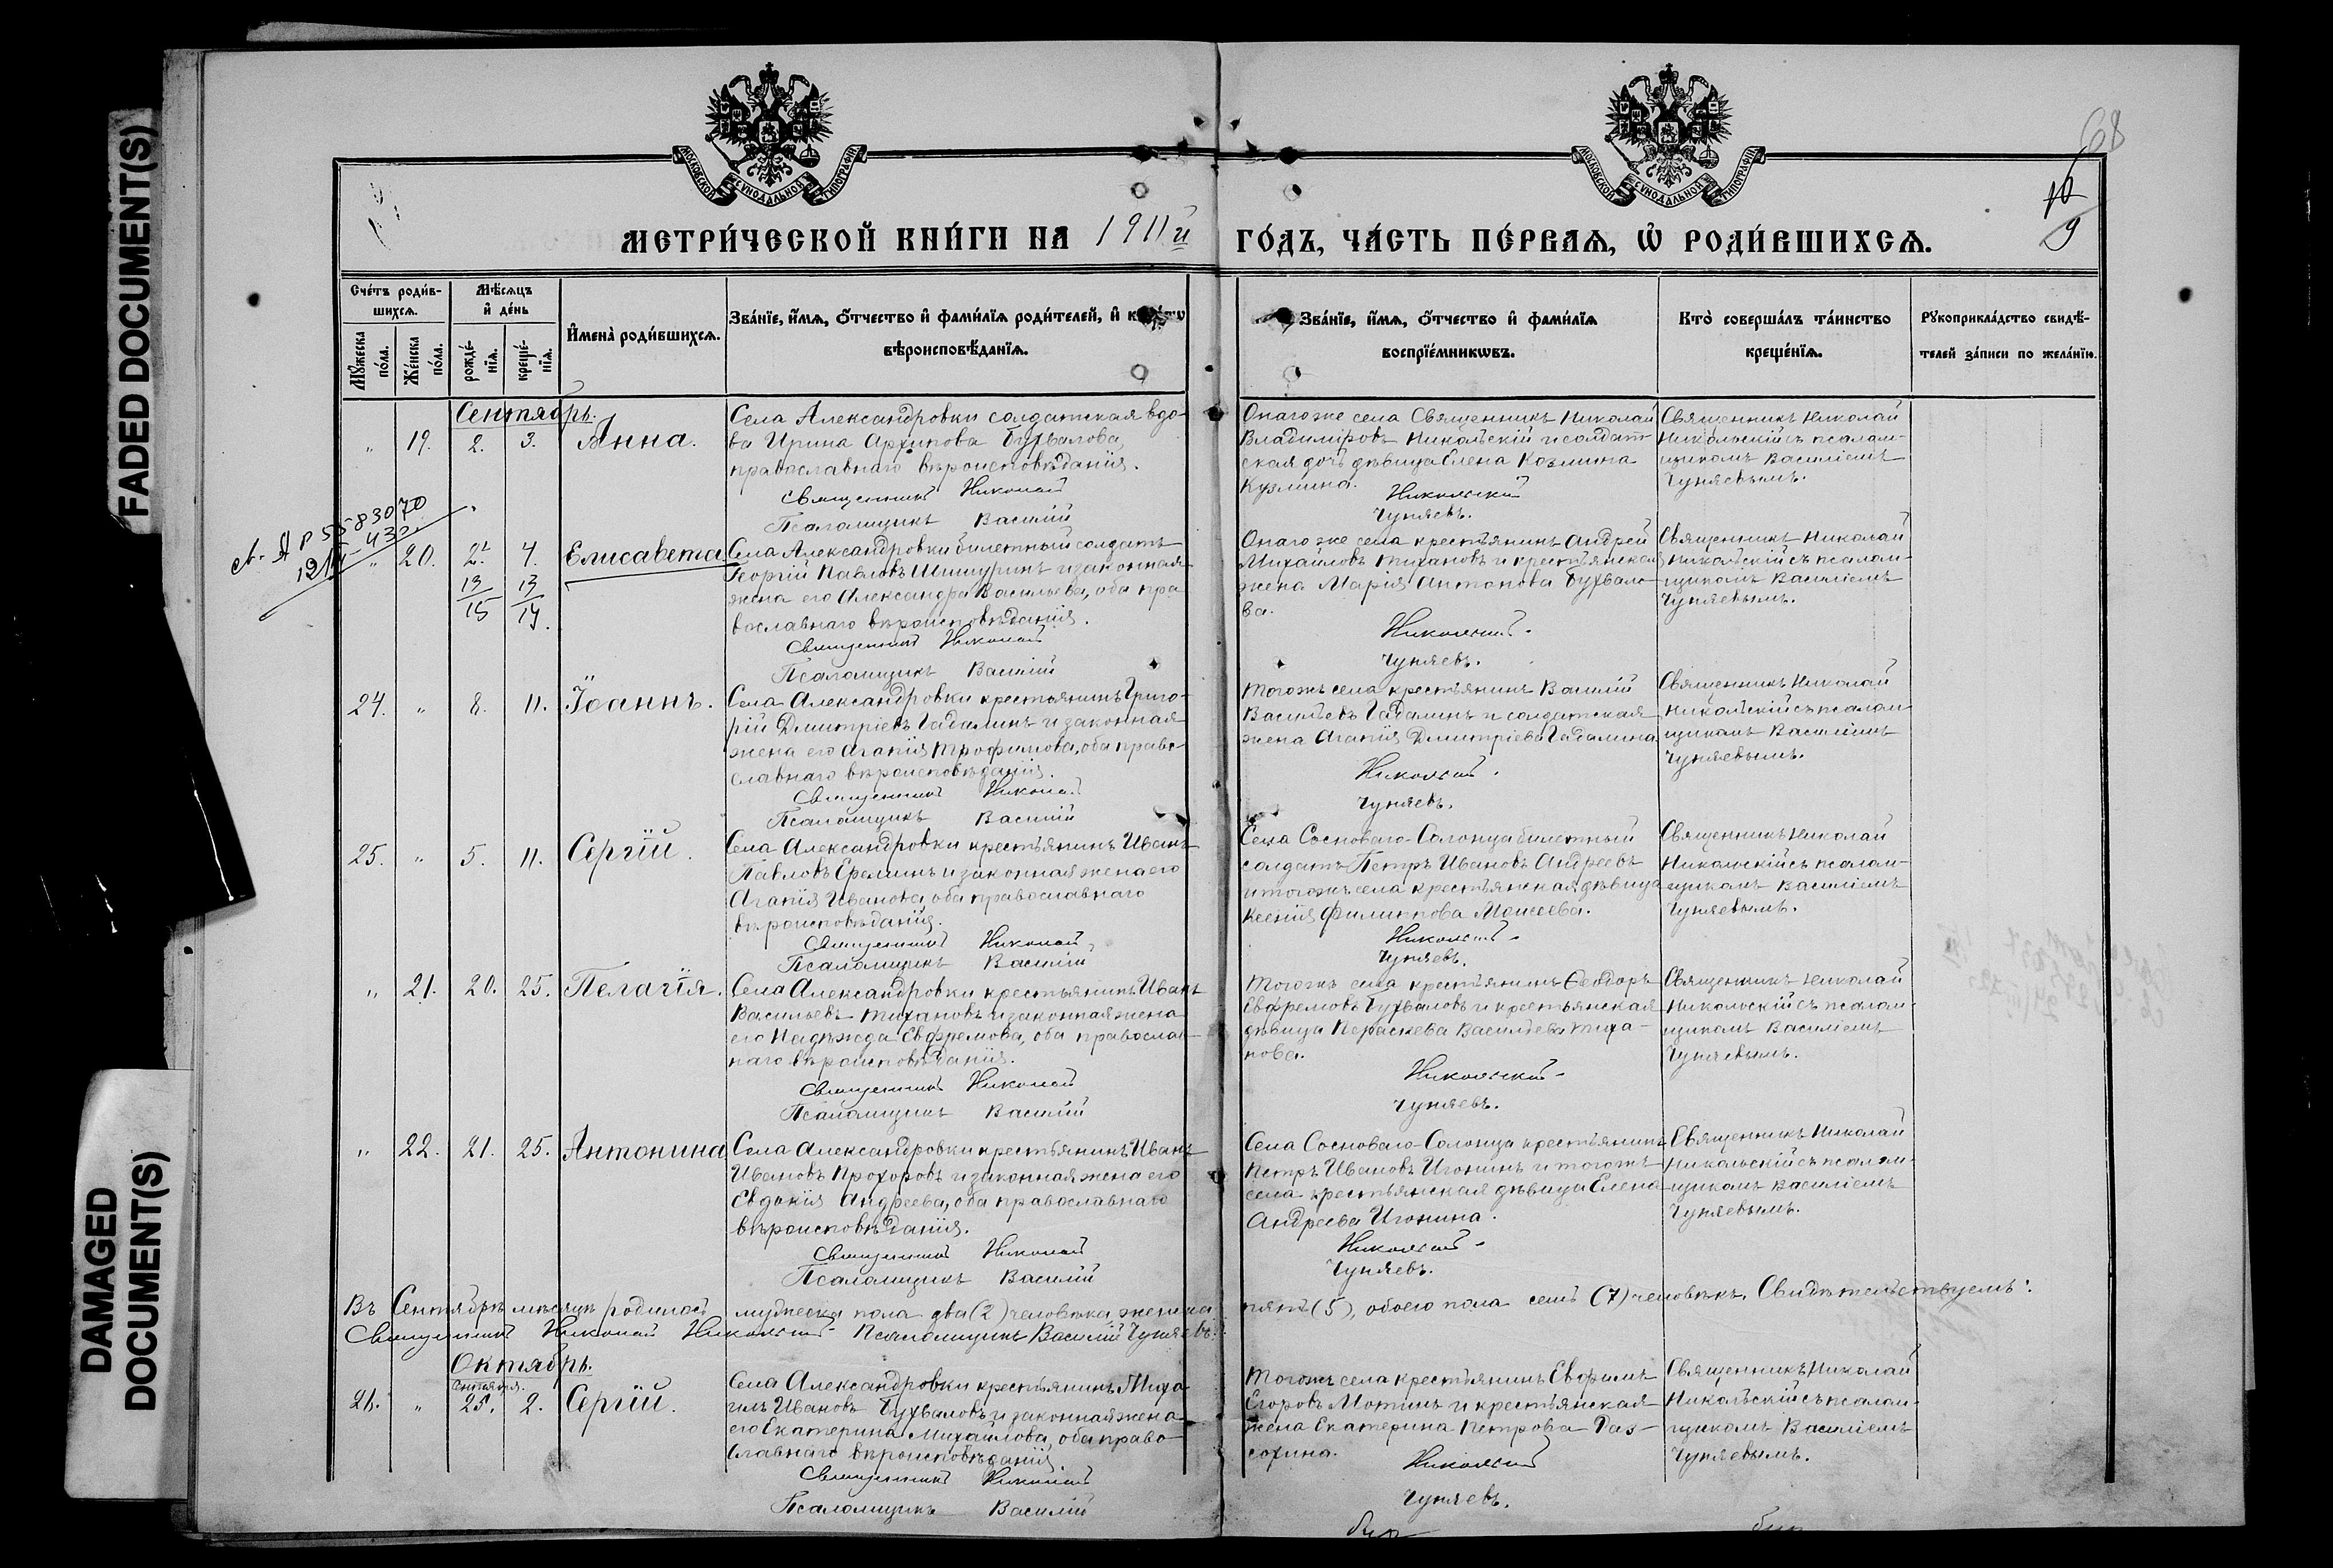 FADED DOCUMENT(S)
DAMAGED
DOCUMENT(S)
МОСКОВСКОЙ СѴНОДАЛЬНОЙ ТИПОГРАФІИ
МОСКОВСКОЙ СѴНОДАЛЬНОЙ ТИПОГРАФІИ
68
10
9
МЕТРИ́ЧЕСКОЙ КНИ́ГИ НА 1911й ГО́ДЪ, ЧА́СТЬ ПЕ́РВАѦ, Ѡ҆ РОДИ́ВШИХСѦ.
Сче́тъ роди́в-
шихсѧ.
Мꙋ́жеска по́ла.
Же́нска по́ла.
Мѣ́сѧцъ
и҆ де́нь
рожде́-
нїѧ.
креще́-
нїѧ.
И҆мена̀ роди́вшихсѧ.
Зва́нїе, и҆́мѧ, ѻ҆́тчество и҆ фами́лїѧ роди́телей, и҆
вѣроисповѣ́данїѧ.
Зва́нїе, и҆́мѧ, ѻ҆́тчество и҆ фами́лїѧ
воспрїе́мникѡвъ.
Кто̀ соверша́лъ та́инство
креще́нїѧ.
Рꙋкоприкла́дство свидѣ́-
телей за́писи по жела́нїю.
Сентябрь.
„ 19. 2. 3. Анна.
Села Александровки солдатская вдо-
ва Ирина Архипова Бухвалова,
православнаго вѣроисповѣданія.
Священникъ Николай
Псаломщикъ Василій
Онагоже села Священникъ Николай
Владиміровъ Никольскій и солдат-
ская дочь дѣвица Елена Козмина
Кузмина.
Никольскій
Чуняевъ.
Священникъ Николай
Никольскій съ псалом-
щикомъ Василіемъ
Чуняевымъ.
„ 20. 2. 4. Елисавета
13 13
15 14.
Села Александровки билетный солдатъ
Георгій Павловъ Шишуринъ и законная
жена его Александра Васильева, оба пра
вославнаго вѣроисповѣданія.
Священникъ Николай
Псаломщикъ Василій
Онагоже села крестьянинъ Андрей
Михайловъ Тихановъ и крестьянская
жена Марія Антонова Бухвало-
ва.
Никольскій.
Чуняевъ.
Священникъ Николай
Никольскій съ псалом-
щикомъ Василіемъ
Чуняевымъ.
24. „ 8. 11. Іоаннъ.
Села Александровки крестьянинъ Григо-
рій Дмитріевъ Гадалинъ и законная
жена его Агапія Трофимова, оба право-
славнаго вѣроисповѣданія.
Священникъ Николай
Псаломщикъ Василій
Тогожъ села крестьянинъ Василій
Васильевъ Гадалинъ и солдатская
жена Агапія Дмитріева Гадалина
Никольскій.
Чуняевъ.
Священникъ Николай
Никольскій съ псалом-
щикомъ Василіемъ
Чуняевымъ.
25. „ 5. 11. Сергій.
Села Александровки крестьянинъ Иванъ
Павловъ Еремин и законная жена его
Агапія Иванова, оба православнаго
вѣроисповѣданія.
Священникъ Николай
Псаломщикъ Василій
Села Сосноваго-Солонца билетный
солдатъ Петръ Ивановъ Андреевъ
и тогожъ села крестьянская дѣвица
Ксенія Филиппова Моисеева.
Никольскій.
Чуняевъ.
Священникъ Николай
Никольскій съ псалом-
щикомъ Василіемъ
Чуняевымъ.
„ 21. 20. 25. Пелагія.
Села Александровки крестьянинъ Иванъ
Васильевъ Тихановъ и законная жена
его Надежда Евфремова, оба православ-
наго вѣроисповѣданія.
Священникъ Николай
Псаломщикъ Василій
Тогожъ села крестьянинъ Ѳеодоръ
Евфремовъ Бухваловъ и крестьянская
дѣвица Параскева Васильева Тиха-
нова.
Никольскій
Чуняевъ.
Священникъ Николай
Никольскій съ псалом-
щикомъ Василіемъ
Чуняевымъ.
„ 22. 21. 25. Антонина
Села Александровки крестьянинъ Иванъ
Ивановъ Прохоровъ и законная жена его
Евдокія Андреева, оба православнаго
вѣроисповѣданія.
Священникъ Николай
Псаломщикъ Василій
Села Сосноваго-Солонца крестьянинъ
Петръ Ивановъ Игонинъ и тогожъ
села крестьянская дѣвица Елена
Андреева Игонина.
Никольскій.
Чуняевъ.
Священникъ Николай
Никольскій съ псалом-
щикомъ Василіемъ
Чуняевымъ.
Въ Сентябрѣ мѣсяцѣ родилось мужеска пола два (2) человѣка, женска пять (5), обоего пола семь (7) человѣкъ. Свидѣтельствуемъ:
Священникъ Николай Никольскій Псаломщикъ Василій Чуняевъ.
Октябрь.
Сентября.
26. „ 25. 2. Сергій.
Села Александровки крестьянинъ Миха
илъ Ивановъ Бухваловъ и законная жена
его Екатерина Михайлова, оба право-
славнаго вѣроисповѣданія.
Священникъ Николай
Псаломщикъ Василій
Тогожъ села крестьянинъ Евфимъ
Егоровъ Мотинъ и крестьянская
жена Екатерина Петрова Раз-
сохина.
Никольскій
Чуняевъ.
Священникъ Николай
Никольскій съ псалом-
щикомъ Василіемъ
Чуняевымъ.